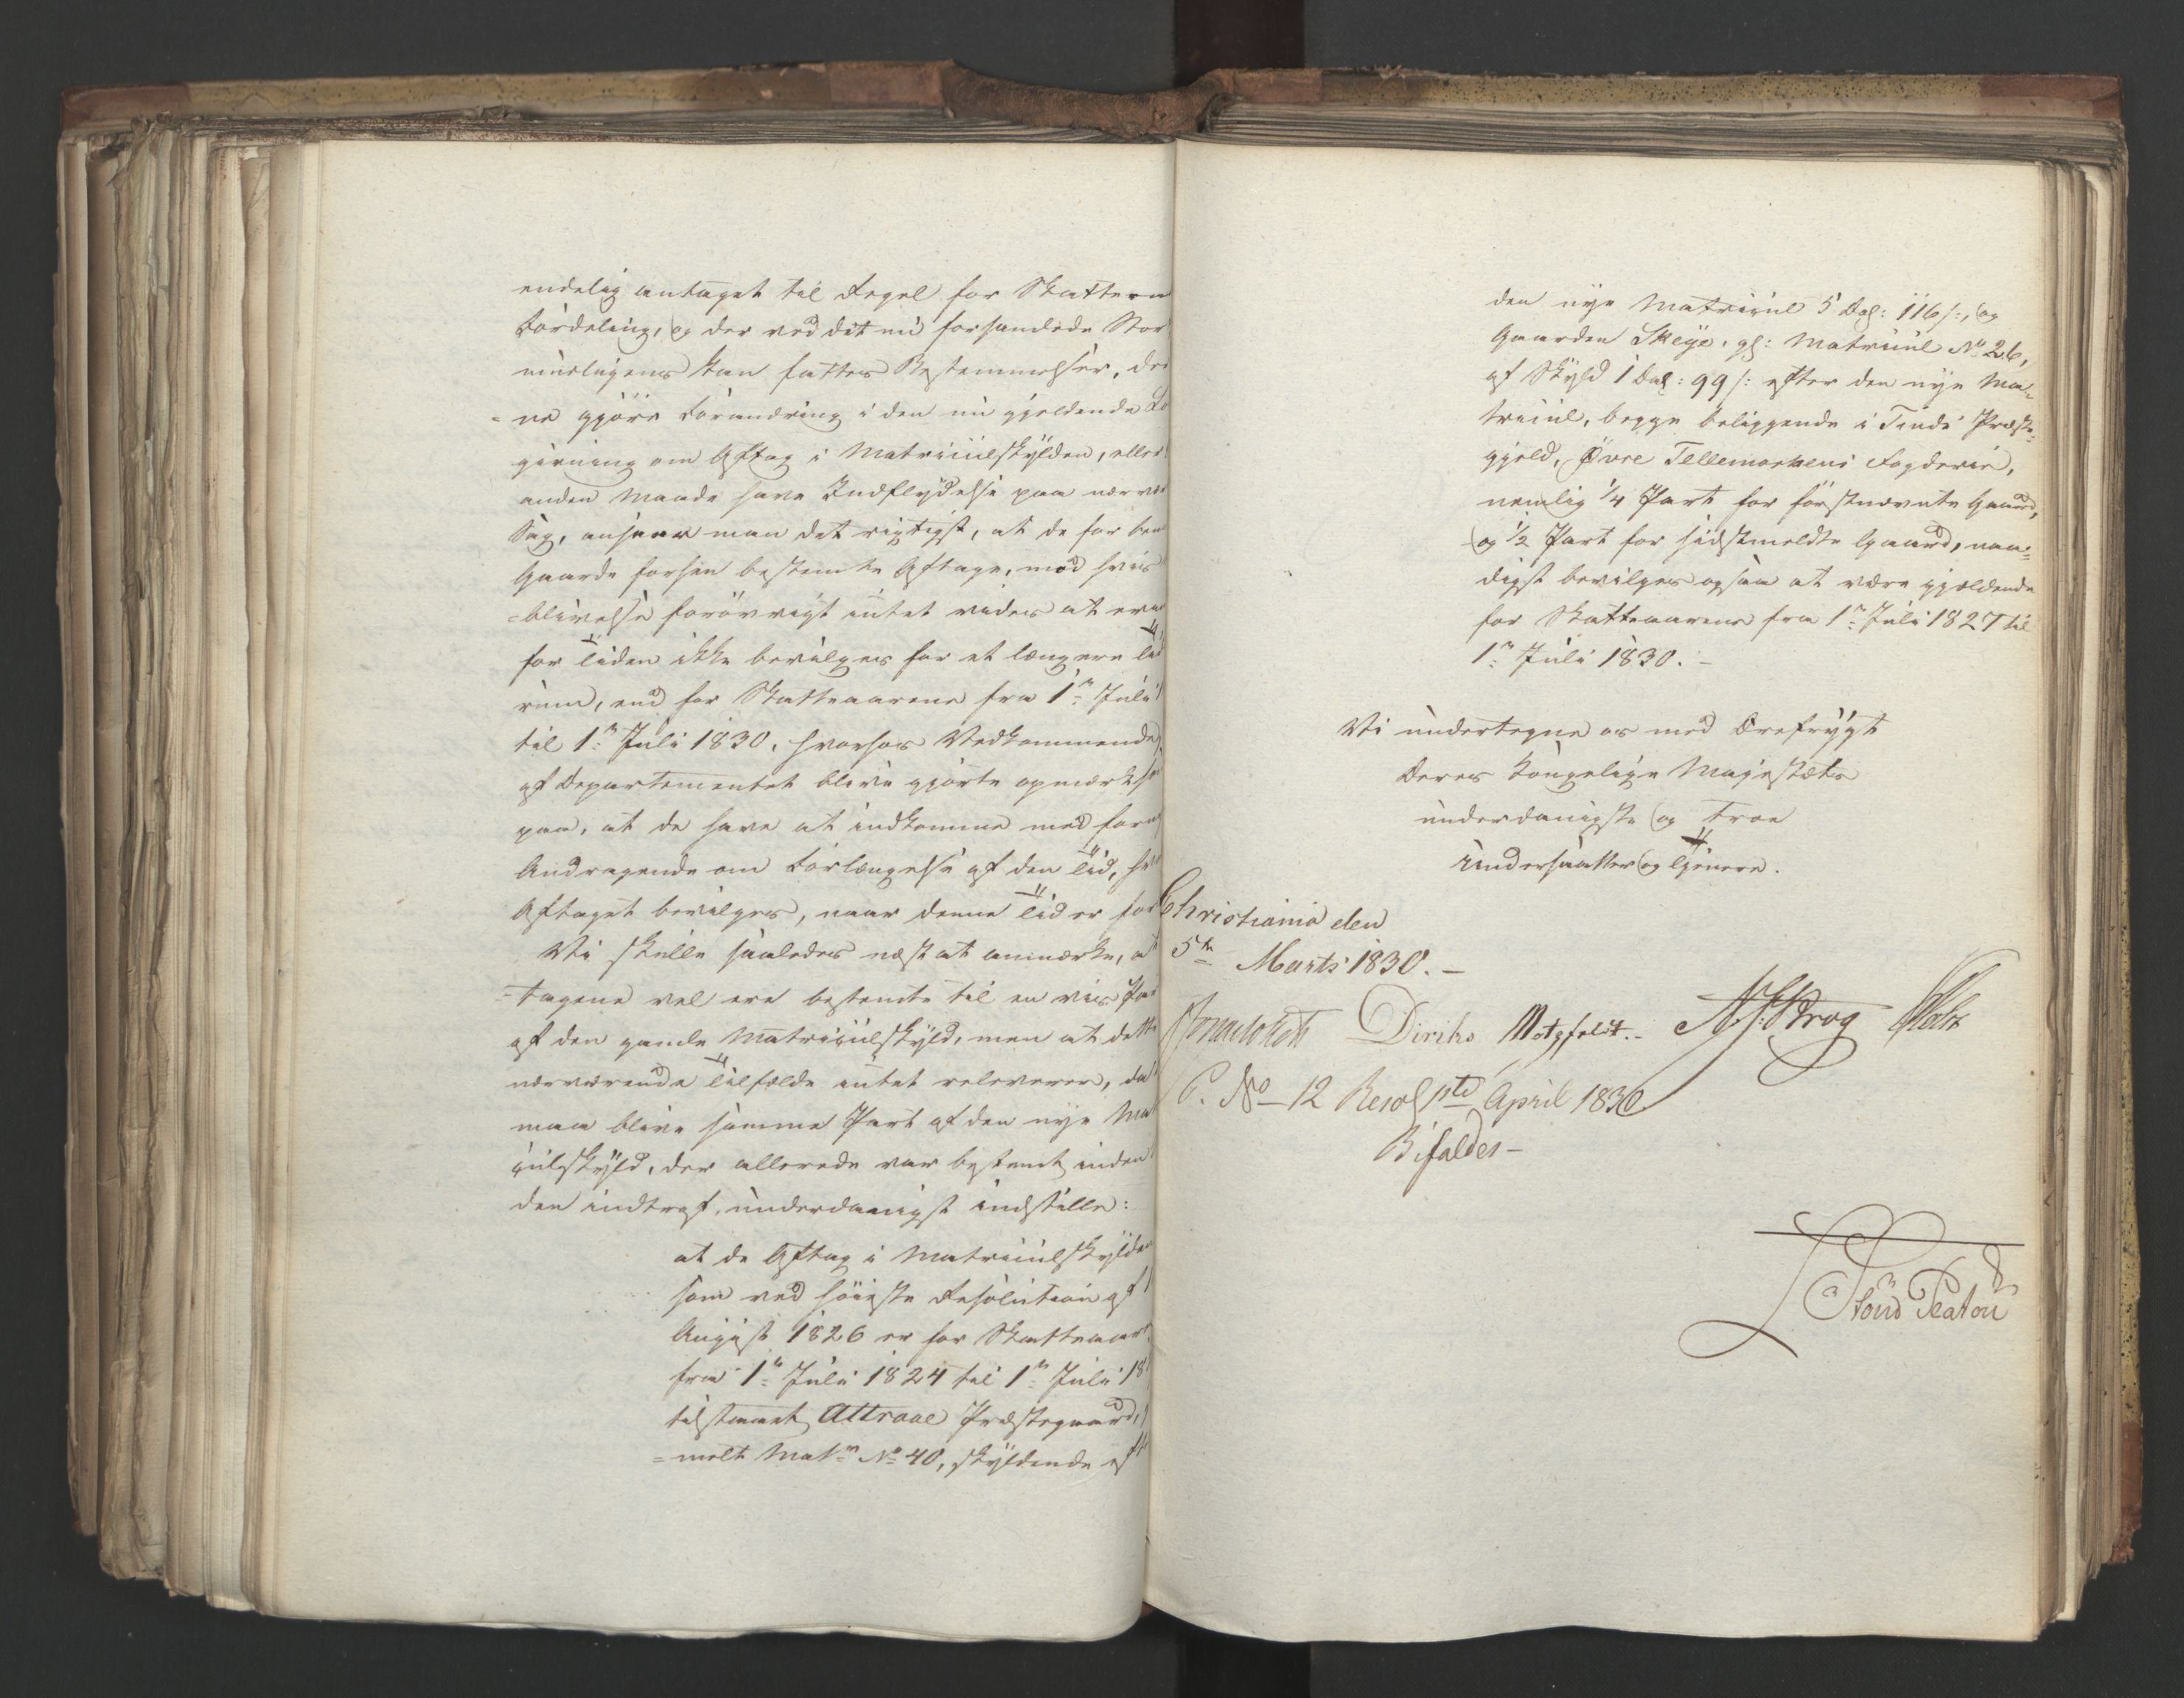 endelig antaget til Regel for Skattens
Fordeling, og der ved det nu forsamlede Stor
muligens kan fattes Bestemmelser, der
ne gjöre Forandring i den nu gjeldende Lo
givning om Aftag i Matriculskylden, eller
anden Maade have Indflydelse paa nærvæ
Sag, anseer man det rigtigst, at de for
Gaarde forhen bestemte Aftage, med hvis
=blivelse forövrigt intet vides at
for Tiden ikke bevilges for et længere Tid
rum, end for Skatteaarene fra 1ste Julii
til 1ste Julii 1830, hvorhos Vedkommende
af Departementet blive gjorte opmærks
paa, at de have at indkomme med for
Andragende om Forlængelse af den Tid, hv
Aftaget bevilges, naar denne Tid er for
Vi skulle saaledes næst at anmærke, a
=tagene vel ere bestemte til en vis Par
af den gamle Matriculskyld, men at dette
nærværende Tilfælde intet releverer, da
maa blive samme Part af den nye Mat
culskyld, der allerede var bestemt, inden
den indtraf, underdanigst indstille:
at de Aftag i Matriculskylden
som ved höieste Resolution af
August 1826 er for Skatteaar
fra 1ste Julii 1824 til 1ste Julii 18
tilstaaet Attraae Præstegaard,
=melt Matr No 40, skyldende eft
den nye Matricul 5 Dal: 116 /:, og
Gaarden Skeÿe, gl: Matricul No 26,
af Skyld 1 Dal: 99 /: efter den nye Ma=
tricul, begge beliggende i Tinds Præste=
gjeld, Övre Tellemarkens Fogderie,
nemlig 1/4 Part for förstnævnte Gaard,
og 1/2 Part for sidstmeldte Gaard, naa=
digst bevilges ogsaa at være gjældende
for Skatteaarene fra 1ste Julii 1827 til
1ste Julii 1830.-
Vi undertegne os med Ærefrygt
Deres Kongelige Majestæts
underdanigste og troe
Undersaatter og Tjenere.
Christiania den
5te Marts 1830.-
Diriks Motzfeldt.- Krog Holst
P. No 12 Resol 1ste April 1830
Bifaldes-